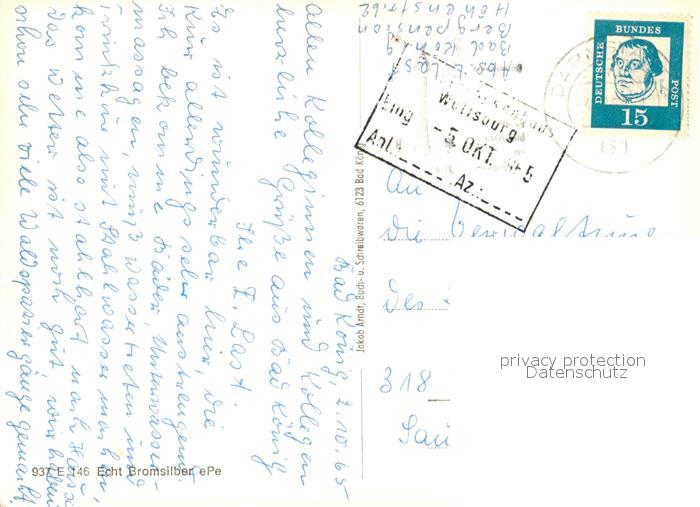 Bad König, 2.10.65
allen Kolleginnen und Kollegen
herzliche Grüße aus Bad König
Ihre E. Last.
Es ist wunderbar hier, die
Kur allerdings sehr anstrengend.
Ich bekomme Bäder, Unterwasser-
massagen muß wassertreten und
mit Stahlwasser machen,
komme also stahlhart nach Hause
Das Wetter ist noch gut, wir haben
schon sehr viele Waldspaziergänge gemacht.
937 E 146 Echt Bromsilber ePe
Jakob Arndt, Buch- u. Schreibwaren, 6123 Bad König
Abs. E. Last
Bad König
Bergpension
Höhenstr. 62
DEUTSCHE BUNDESPOST
15
DAR
61
Wolfsburg
Eing. -5. OKT. 65
Anl. Az.:
An
die Verwaltung
des
318
privacy protection
Datenschutz